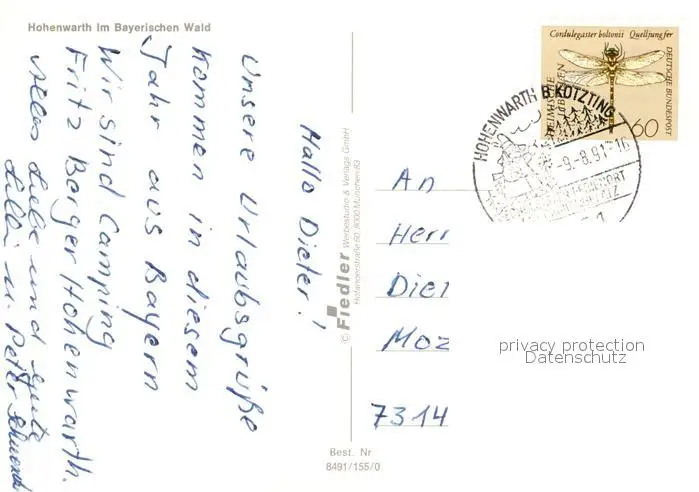 Hohenwarth im Bayerischen Wald
Hallo Dieter!
Unsere Urlaubsgrüße
kommen in diesem
Jahr aus Bayern
Wir sind Camping
Fritz Berger Hohenwarth.
Alles Liebe und Gute
Lilli u. Peter
© Fiedler Werbestudio & Verlags GmbH
8000 München 83
Best. Nr
8491/155/0
Cordulegaster boltonii Quelljungfer
DEUTSCHE BUNDESPOST
60
HOHENWARTH B KÖTZTING
-9.-8.91-16
An
Herr
Diet
Moz
7314
privacy protection
Datenschutz